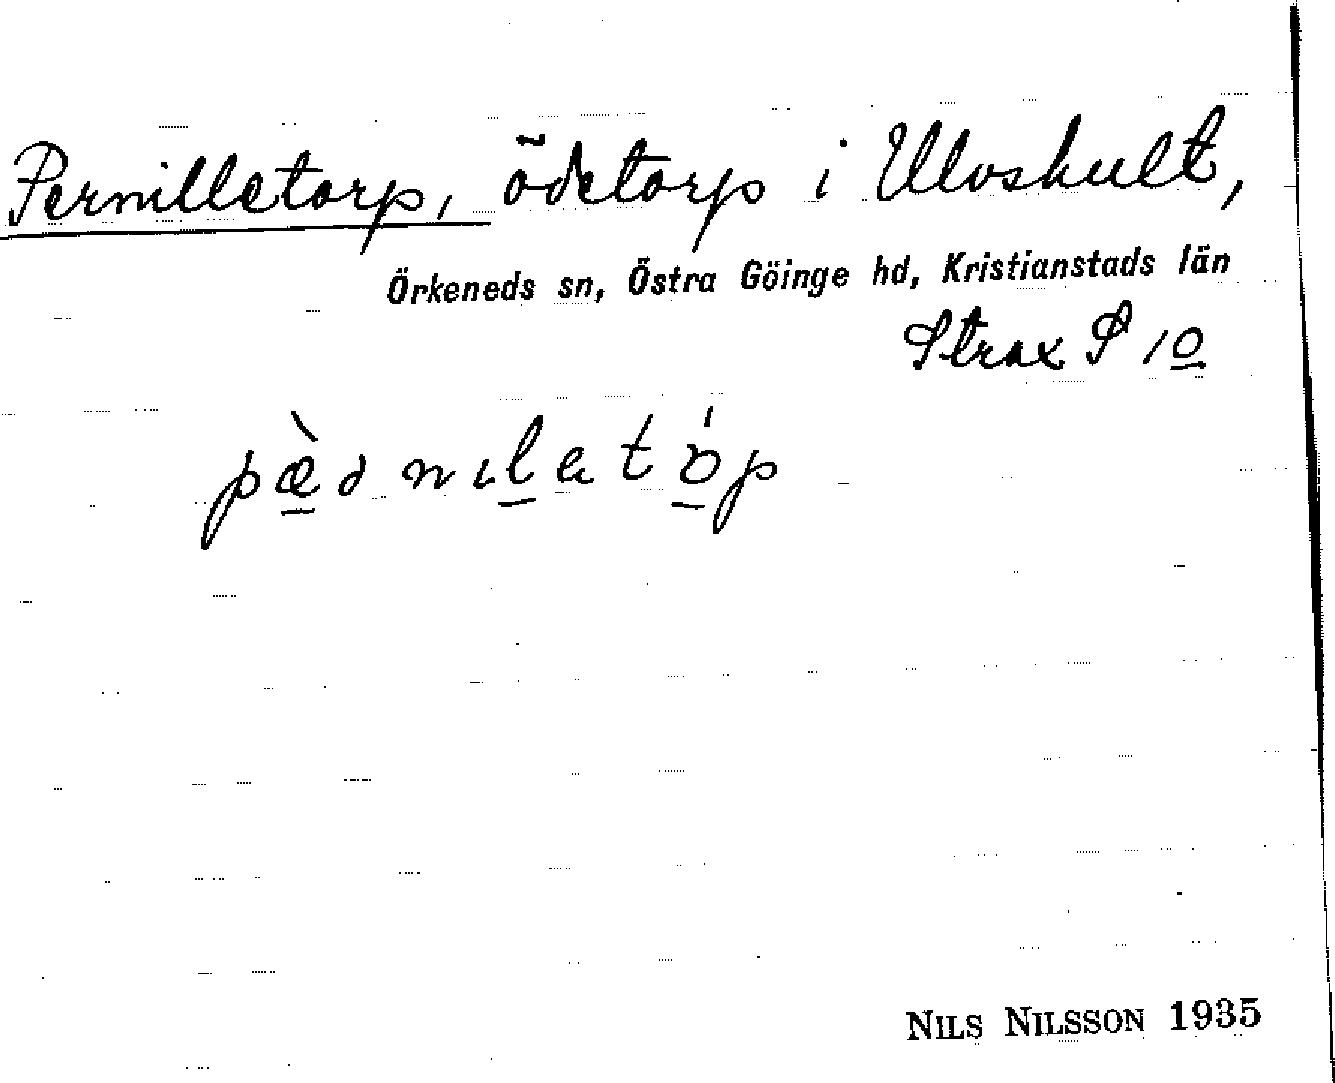 Pernilletorp, ödetorp i Ulvshult,
Örkeneds sn, Östra Göinge hd, Kristianstads län
Strax S 10
NILS NILSSON 1935